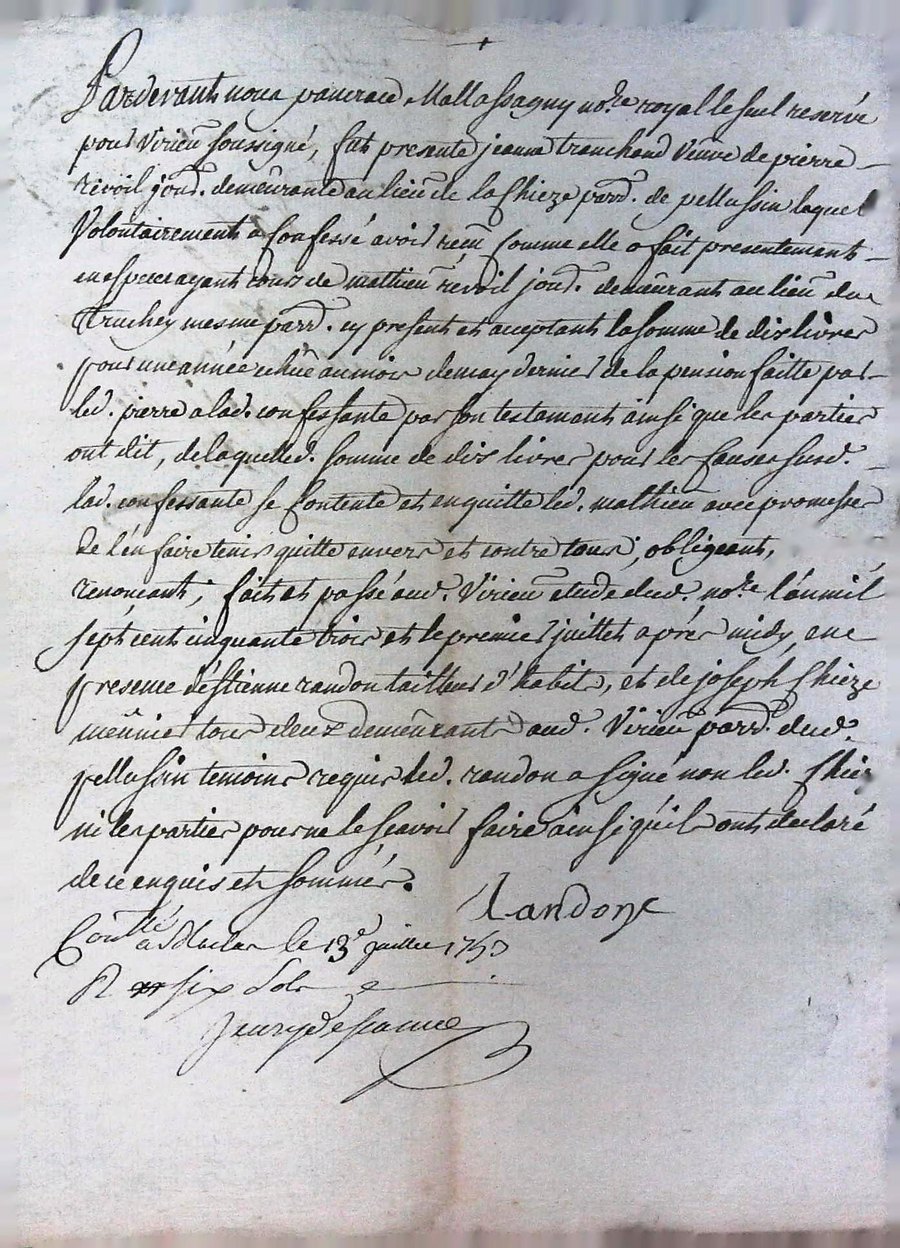 Pardevant nous pancrace Mallassagny no.re royal le seul reservé
pour Virieu soussigné, fut presente jeanne tranchand veuve de pierre
revoil jour. demeurante au lieu de la Chieze parr. de pellussin laquel
Volontairement a confessé avoir reçu comme elle a fait presentement
en especes ayant cours de mathieu revoil jour. demeurant au lieu du
Truchey mesme parr. cy present et acceptant la somme de dix livres
pour une année echüe au mois de may dernier de la pension faitte par
led. pierre a lad. confessante par son testament ainsi que les parties
ont dit, de laquelle d. somme de dix livres pour les causes susd.
lad. confessante se contente et en quitte led. mathieu avec promesse
de l'en faire tenir quitte envers et contre tous, obligeant,
renoncant; fait et passé aud. Virieu etude dud. no.re l'an mil
sept cent cinquante trois et le premier juillet aprés midy, en
presence d'éstienne randon tailleur d'habits, et de joseph Chieze
meünier tous deux demeurants aud. Virieu parr. dud.
pellussin temoins requis led. randon a signé non led. Chiez
ni les parties pour ne le scavoir faire ainsi qu'ils ont declaré
de ce enquis et sommés.
Randon
Conllé a Maclas le 13e juillet 1753
R six sols